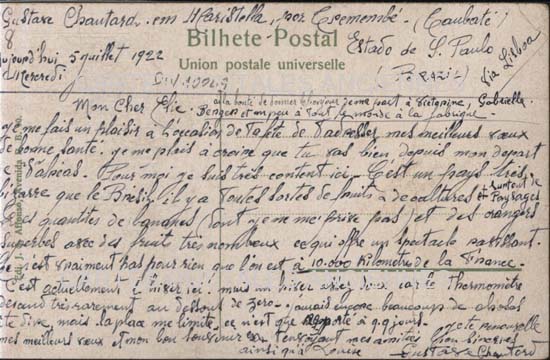 Gustave Chautard. em Maristella, por Tremembé. (Taubaté)
8
Bilhete Postal
Estado de S. Paulo
Aujourd'hui 5 juillet 1922
Union postale universelle
(Brazil) via Lisboa
Mercredi
Mon Cher
aie la bonté de donner le bonjour de ma part à Victorine, Gabrielle
et un peu à tout le monde à la fabrique.
je me fais un plaisir à l'occasion de ta fête de t'adresser mes meilleurs vœux
de bonne santé. je me plais à croire que tu vas bien depuis mon départ
Pour moi je suis très content ici. C'est un pays très
bizarre que le Brésil. il y a toutes sortes de fruits de cultures et surtout de paysages
des quantités de bananes (dont je ne me prive pas) et des orangers
superbes avec des fruits très nombreux ce qui offre un spectacle
ce n'est vraiment pas pour rien que l'on est à 10.000 kilomètres de la France.
C'est actuellement l'hiver ici. mais un hiver assez doux car le thermomètre
descend très rarement au dessous de zéro. j'aurais encore beaucoup de choses
à te dire mais la place me limite. ce n'est que à qq jours. je te renouvelle
mes meilleurs vœux et mon bon souvenir en t'envoyant mes amitiés bien sincères
ainsi qu'à Louise
Gustave Chautard
Edit. J. Affonso, Avenida